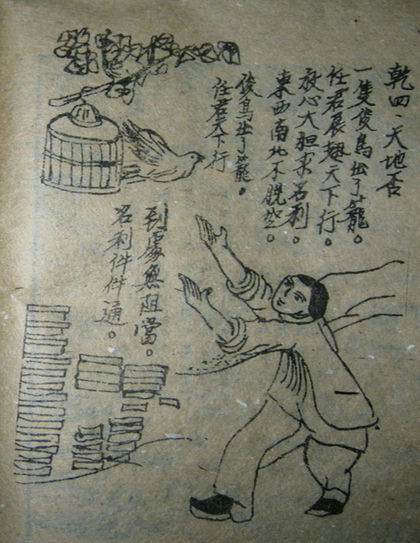 乾四、天地否
一隻俊鳥出了籠。
任君展翅天下行。
放心大担求名利。
東西南北不脱空。
俊鳥出了籠。
任君天下行
到處無阻當。
名利件件通。